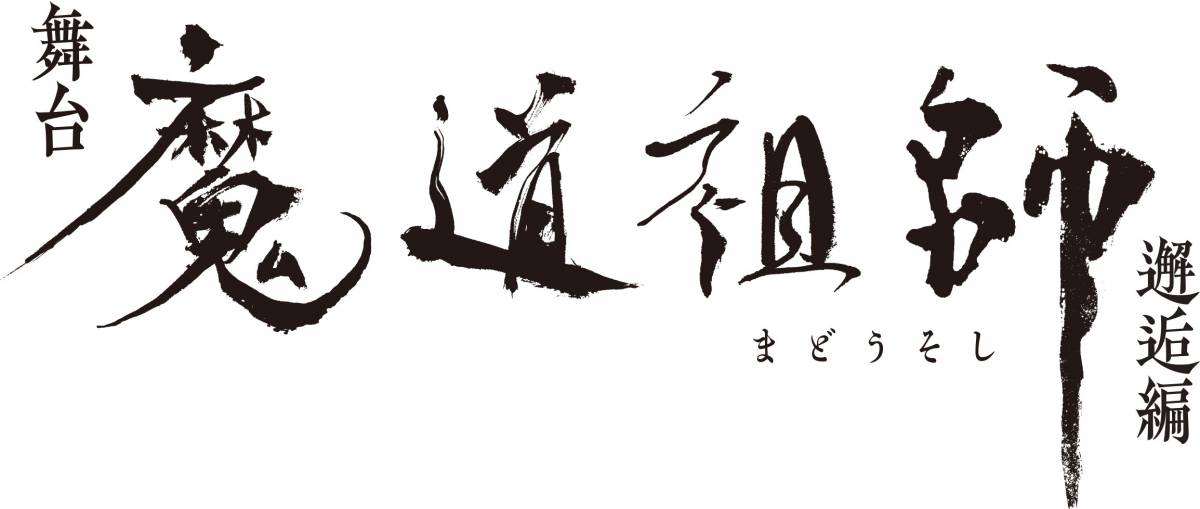 舞台
魔道祖師
まどうそし
邂逅編